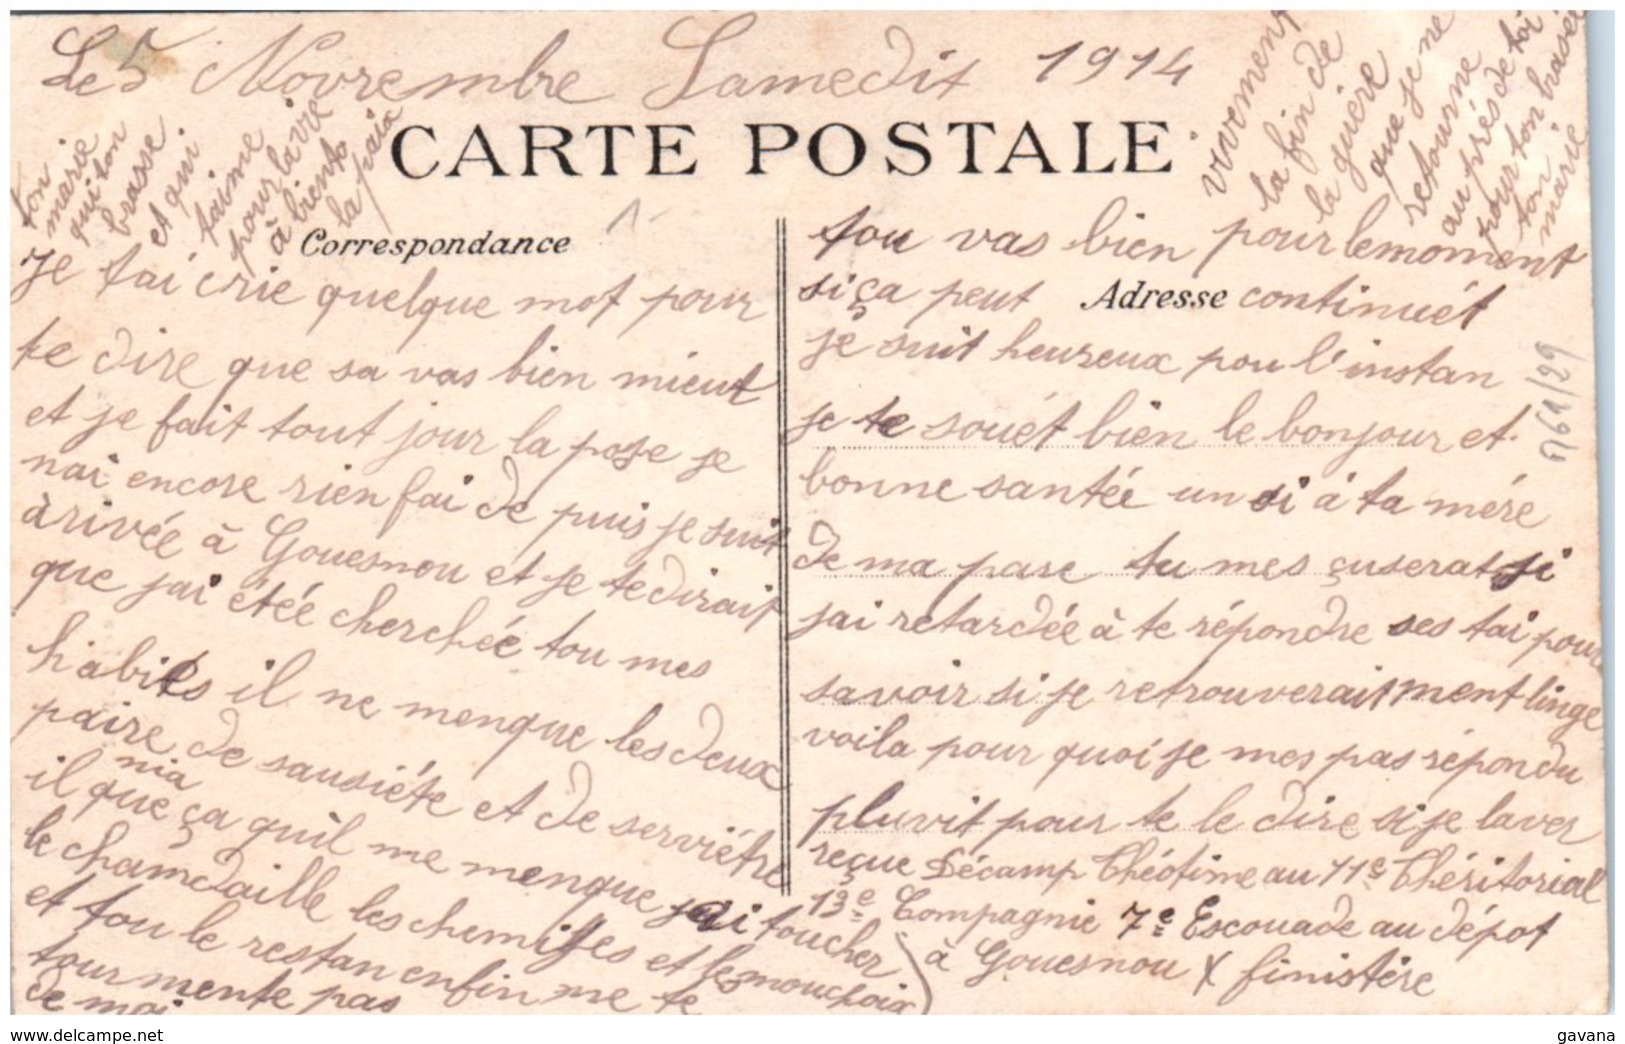 Le 5 Novrembre Samedit 1914
CARTE POSTALE
Correspondance
Je tai crie quelque mot pour
te dire que sa vas bien mieut
et je fait tout jour la pose je
nai encore rien fai de puis je suit
àrivée à Gouesnou et je te dirait
que jai étée cherchée tou mes
habiles il ne menque les deux
paire de sausiéte et de serviétre
il nia que ça quil me menque jai toucher
le chamdaille les chemises et les mouchoix
et tou le restan enfin me te
tourmente pas
de moi
Adresse
tou vas bien pour le moment
si ça peut continuét
je suit heureux pou l'instan
je te souét bien le bonjour et
bonne santée un si á ta mére
de ma pare tu mes çuserat si
jai retardée à te répondre ses tai pour
savoir si je retrouverait ment linge
voila pour quoi je mes pas répondu
pluvit pour te le dire si je laver
reçue Décamp Théotime au 71e Théritorial
13e Compagnie 7e Escouade au dépot
à Gouesnou X finistére
vivement
la fin de
la guere
que je ne
retourne
au prés de toi
pour ton brasée
ton
marie
ton
marie
qui ton
brasse
et qui
taime
pour la vie
à biento
la paix
delcampe.net
gavana